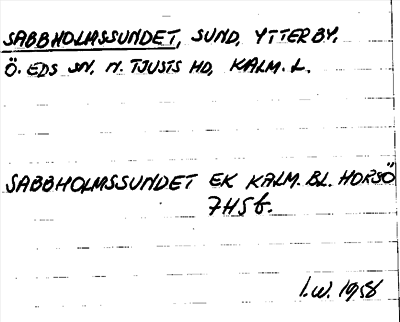 SABBHOLMSSUNDET, SUND, YTTERBY,
Ö. EDS SN, N. TJUSTS HD, KALM. L.
SABBHOLMSSUNDET EK KALM. BL. HORSÖ
7H5f.
I.W. 1958